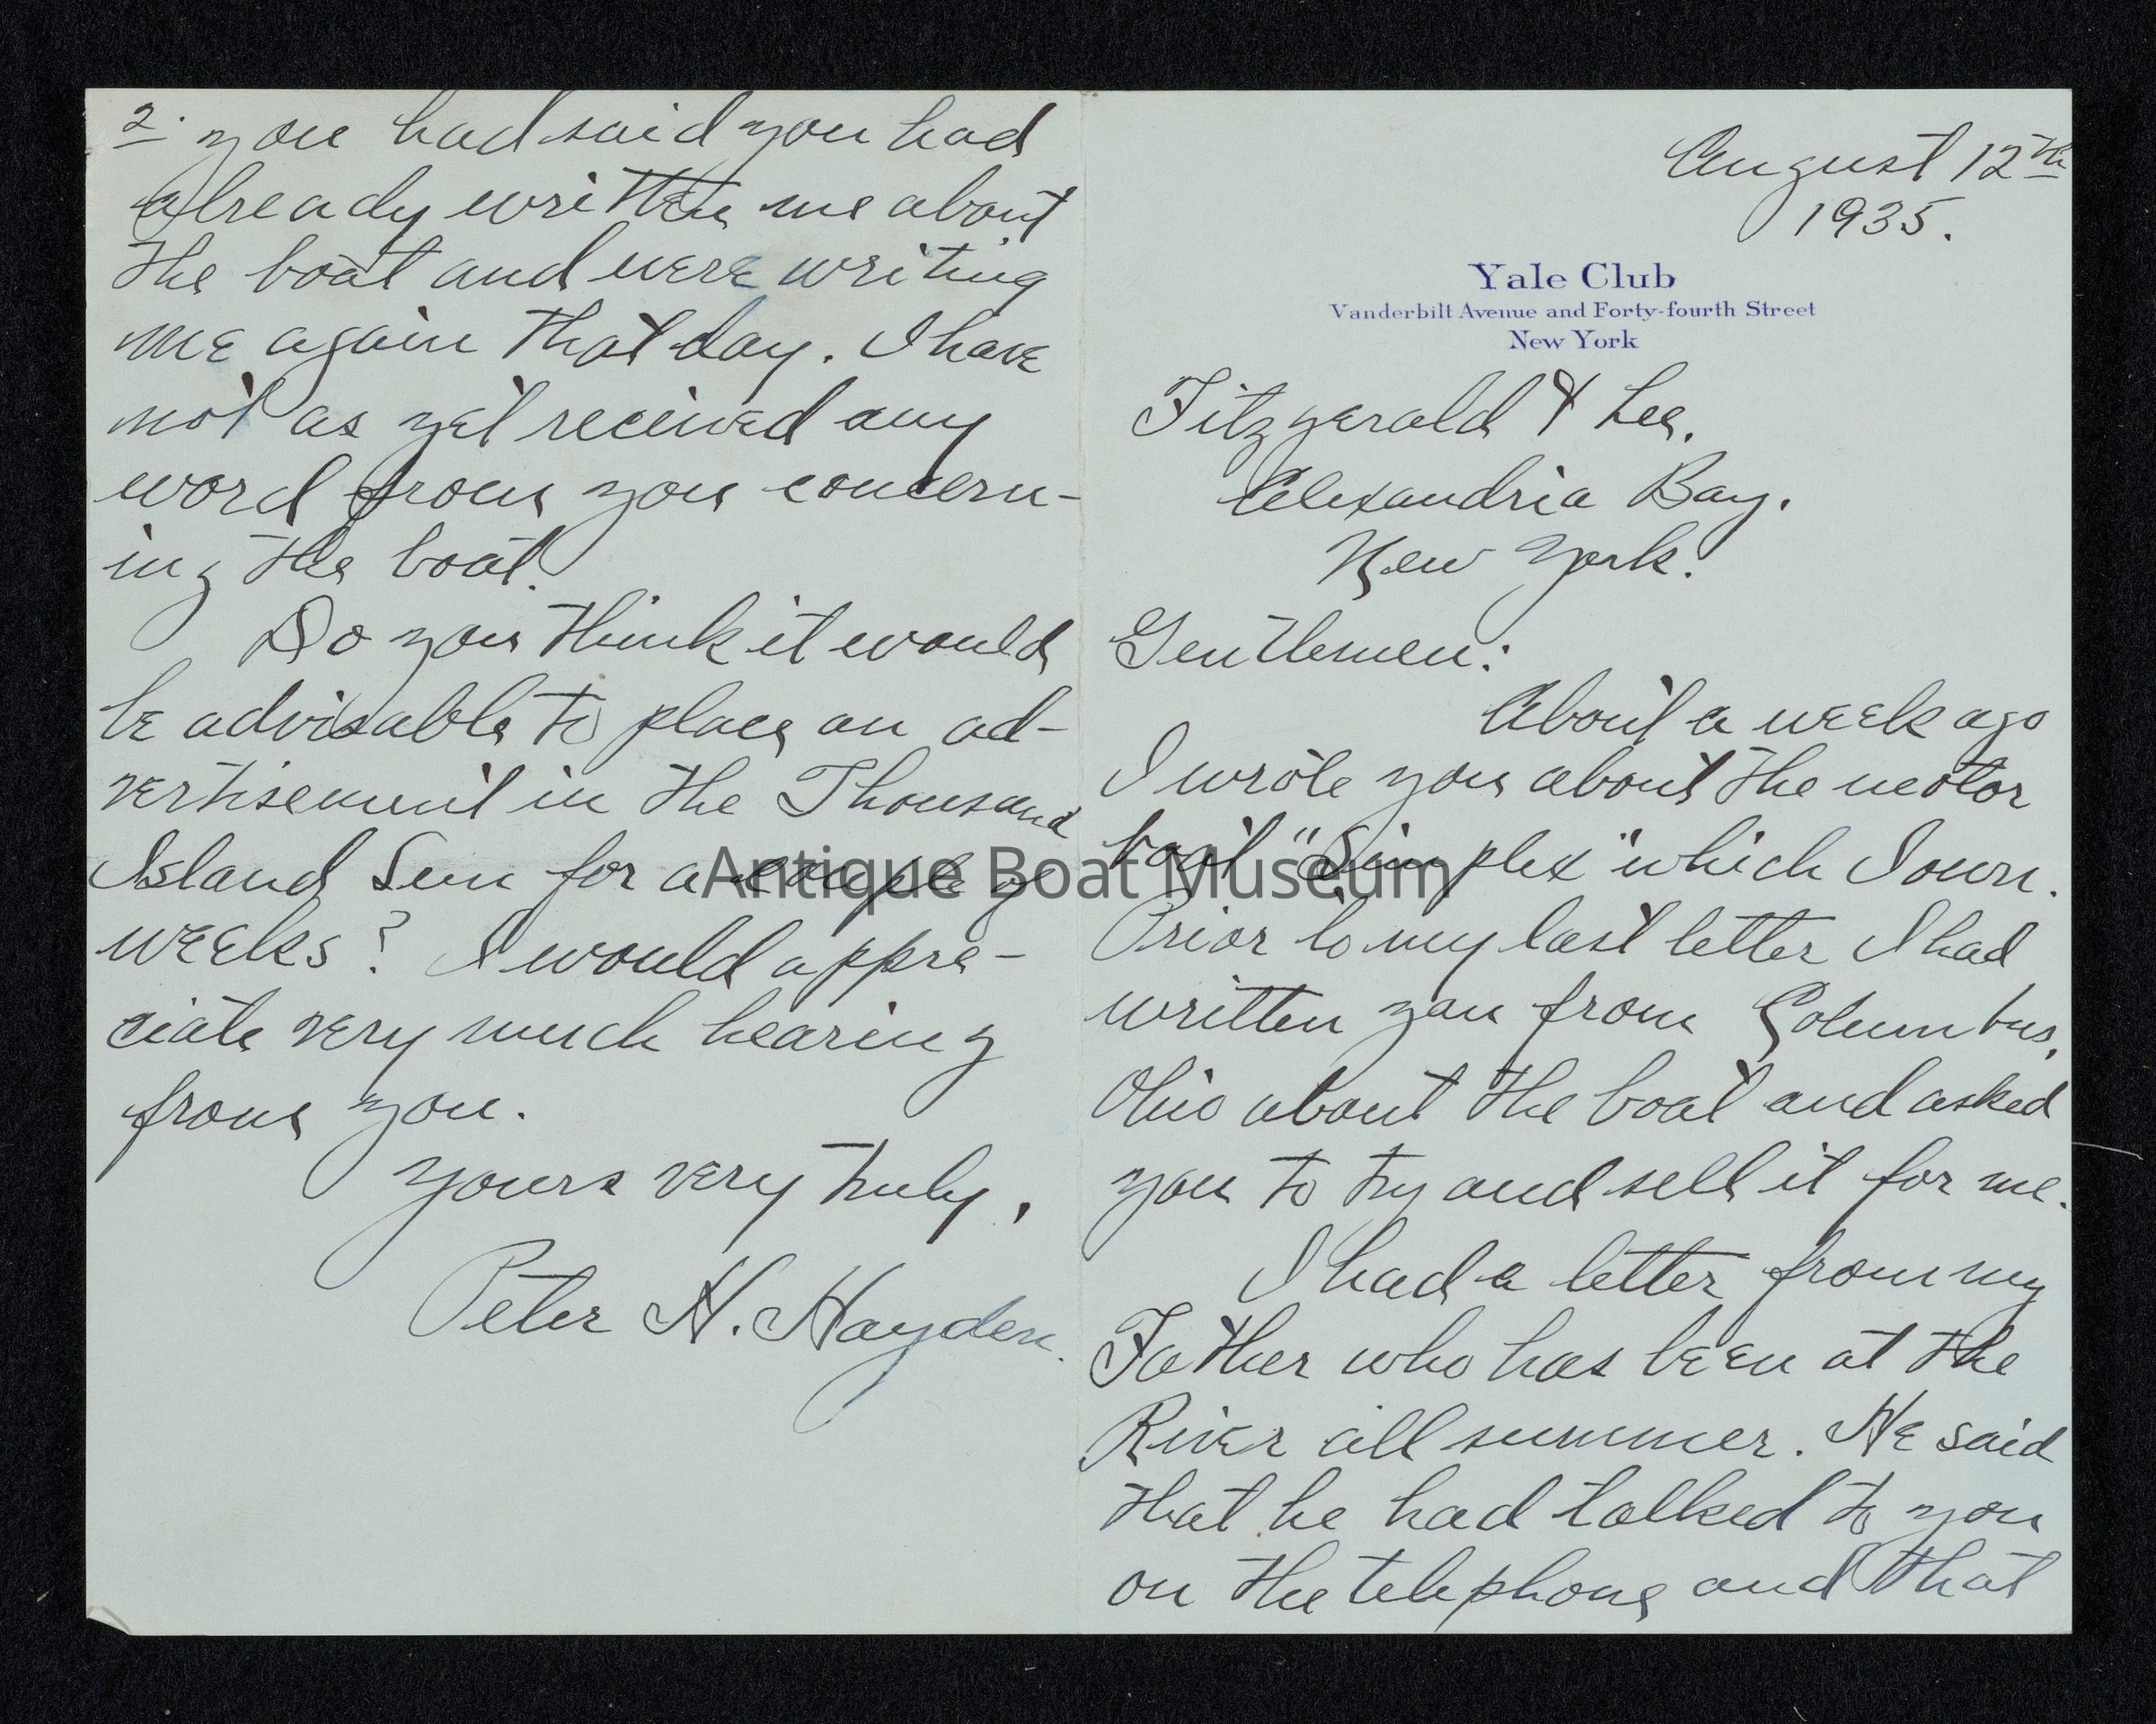 August 12th
1935.
Yale Club
Vanderbilt Avenue and Forty-fourth Street
New York
Fitzgerald & Lee.
Alexandria Bay.
New York.
Gentlemen:
About a week ago
I wrote you about the motor
boat "Simplex" which I own.
Prior to my last letter I had
written you from Columbus,
Ohio about the boat and asked
you to try and sell it for me.
I had a letter from my
Father who has been at the
River all summer. He said
that he had talked to you
on the telephone and that
2. you had said you had
already written me about
the boat and were writing
me again that day. I have
not as yet received any
word from you concern-
ing the boat.
Do you think it would
be advisable to place an ad-
vertisement in the Thousand
Island Sun for a couple of
weeks? I would appre-
ciate very much hearing
from you.
Yours very truly,
Peter H. Hayden.
Antique Boat Museum